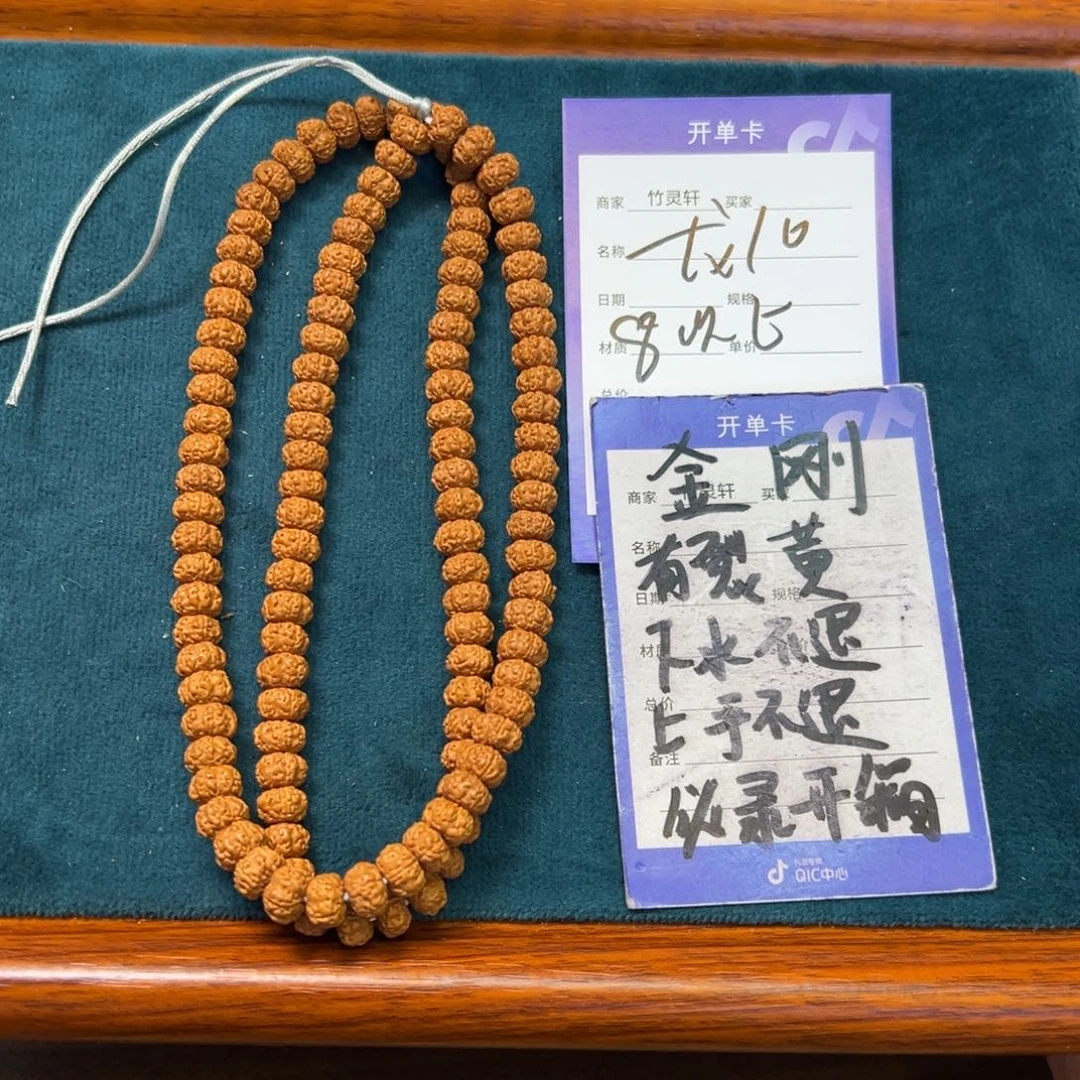 开单卡
商家 竹灵轩 买家
名称
日期 规格
材质 单价
8以上
总价
开单卡
金刚
商家 灵轩 买
名称
有裂黄
日期 规格
下水不退
材质
总价
上手不退
备注
必录开箱
抖音电商
QIC中心